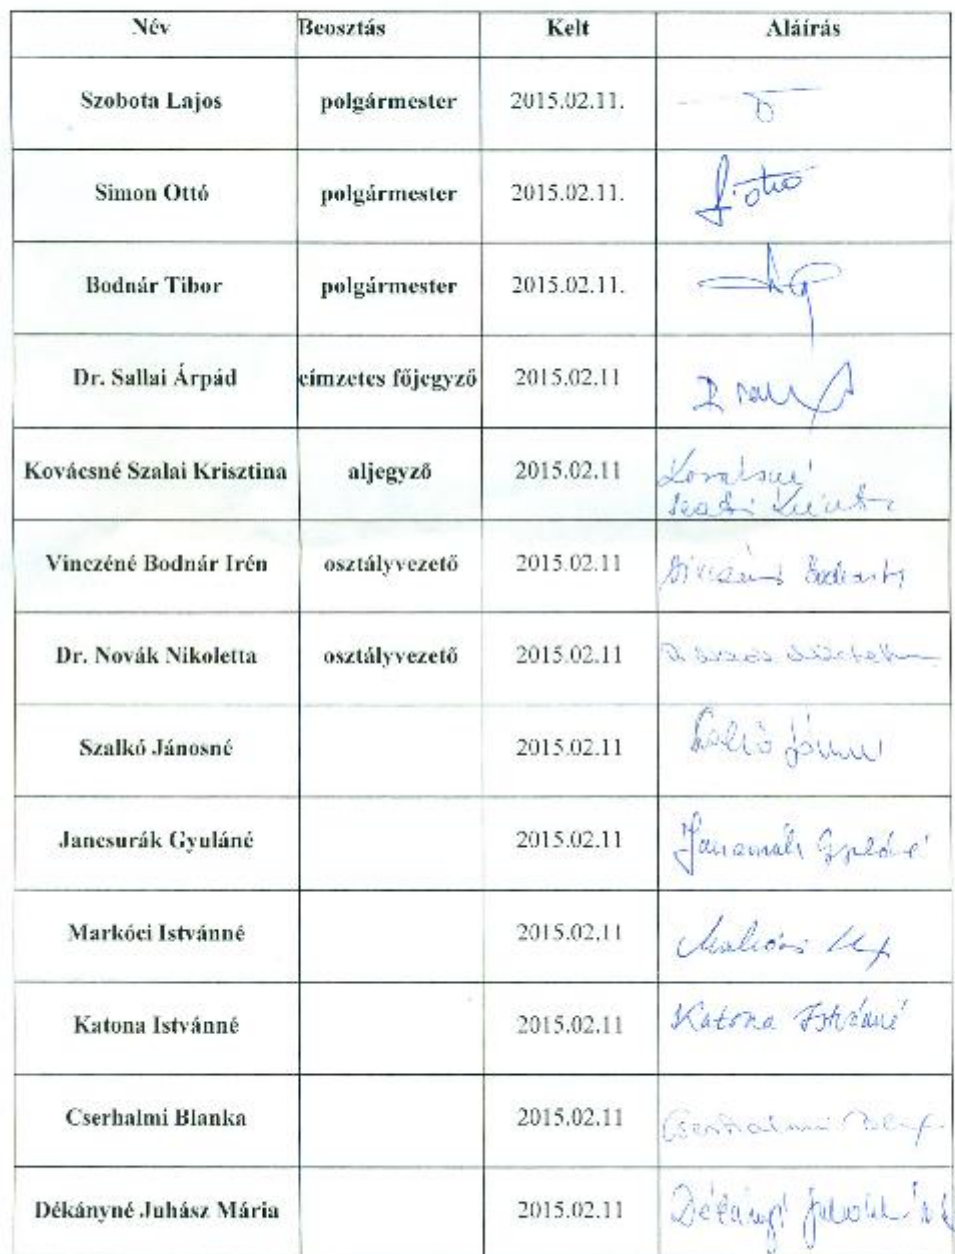 Név Beosztás Kelt Aláírás
Szobota Lajos polgármester 2015.02.11.
Simon Ottó polgármester 2015.02.11.
Bodnár Tibor polgármester 2015.02.11.
Dr. Sallai Árpád címzetes főjegyző 2015.02.11
Kovácsné Szalai Krisztina aljegyző 2015.02.11 Kovácsné
Vinczéné Bodnár Irén osztályvezető 2015.02.11
Dr. Novák Nikoletta osztályvezető 2015.02.11
Szalkó Jánosné 2015.02.11
Jancsurák Gyuláné 2015.02.11
Markóci Istvánné 2015.02.11
Katona Istvánné 2015.02.11 Katona Istvánné
Cserhalmi Blanka 2015.02.11
Dékányné Juhász Mária 2015.02.11